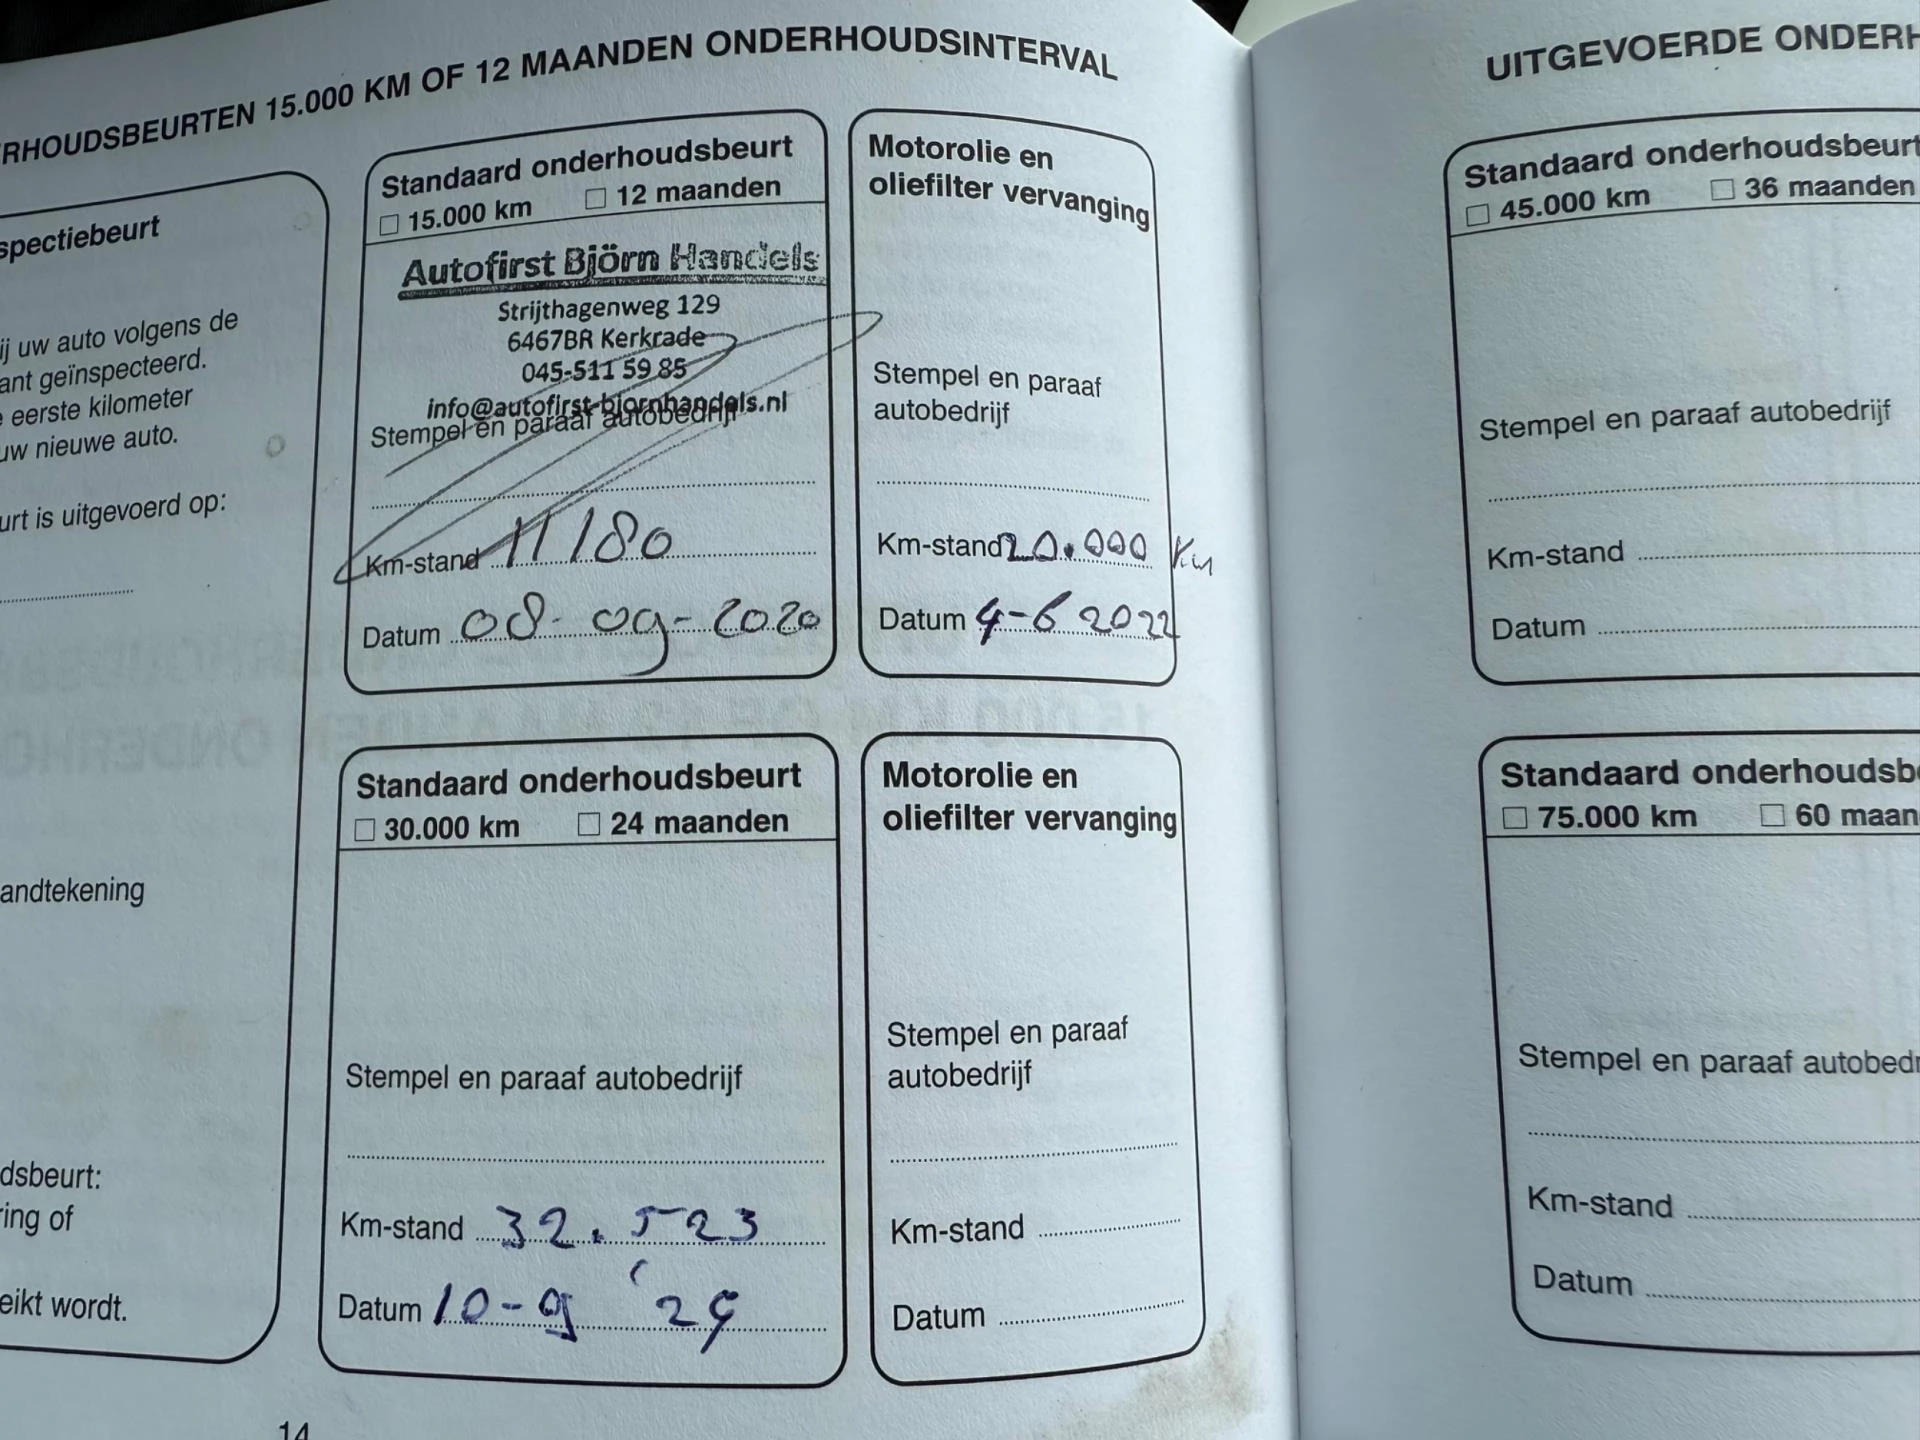 RHOUDSBEURTEN 15.000 KM OF 12 MAANDEN ONDERHOUDSINTERVAL
spectiebeurt
ij uw auto volgens de
ant geïnspecteerd.
e eerste kilometer
uw nieuwe auto.
urt is uitgevoerd op:
andtekening
dsbeurt:
ring of
eikt wordt.
Standaard onderhoudsbeurt
15.000 km 12 maanden
Autofirst Björn Handels
Strijthagenweg 129
6467BR Kerkrade
045-511 59 85
info@autofirst-bjornhandels.nl
Stempel en paraaf autobedrijf
Km-stand 11180
Datum 08-09-2020
Motorolie en
oliefilter vervanging
Stempel en paraaf
autobedrijf
Km-stand 20.000 Km
Datum 4-6 2022
Standaard onderhoudsbeurt
30.000 km 24 maanden
Stempel en paraaf autobedrijf
Km-stand 32.523
Datum 10-9 '24
Motorolie en
oliefilter vervanging
Stempel en paraaf
autobedrijf
Km-stand
Datum
14
UITGEVOERDE ONDERH
Standaard onderhoudsbeurt
45.000 km 36 maanden
Stempel en paraaf autobedrijf
Km-stand
Datum
Standaard onderhoudsb
75.000 km 60 maan
Stempel en paraaf autobedr
Km-stand
Datum